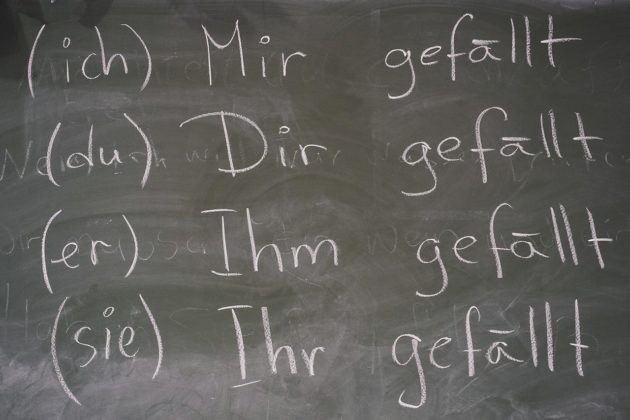 (ich) Mir gefällt
(du) Dir gefällt
(er) Ihm gefällt
(sie) Ihr gefällt